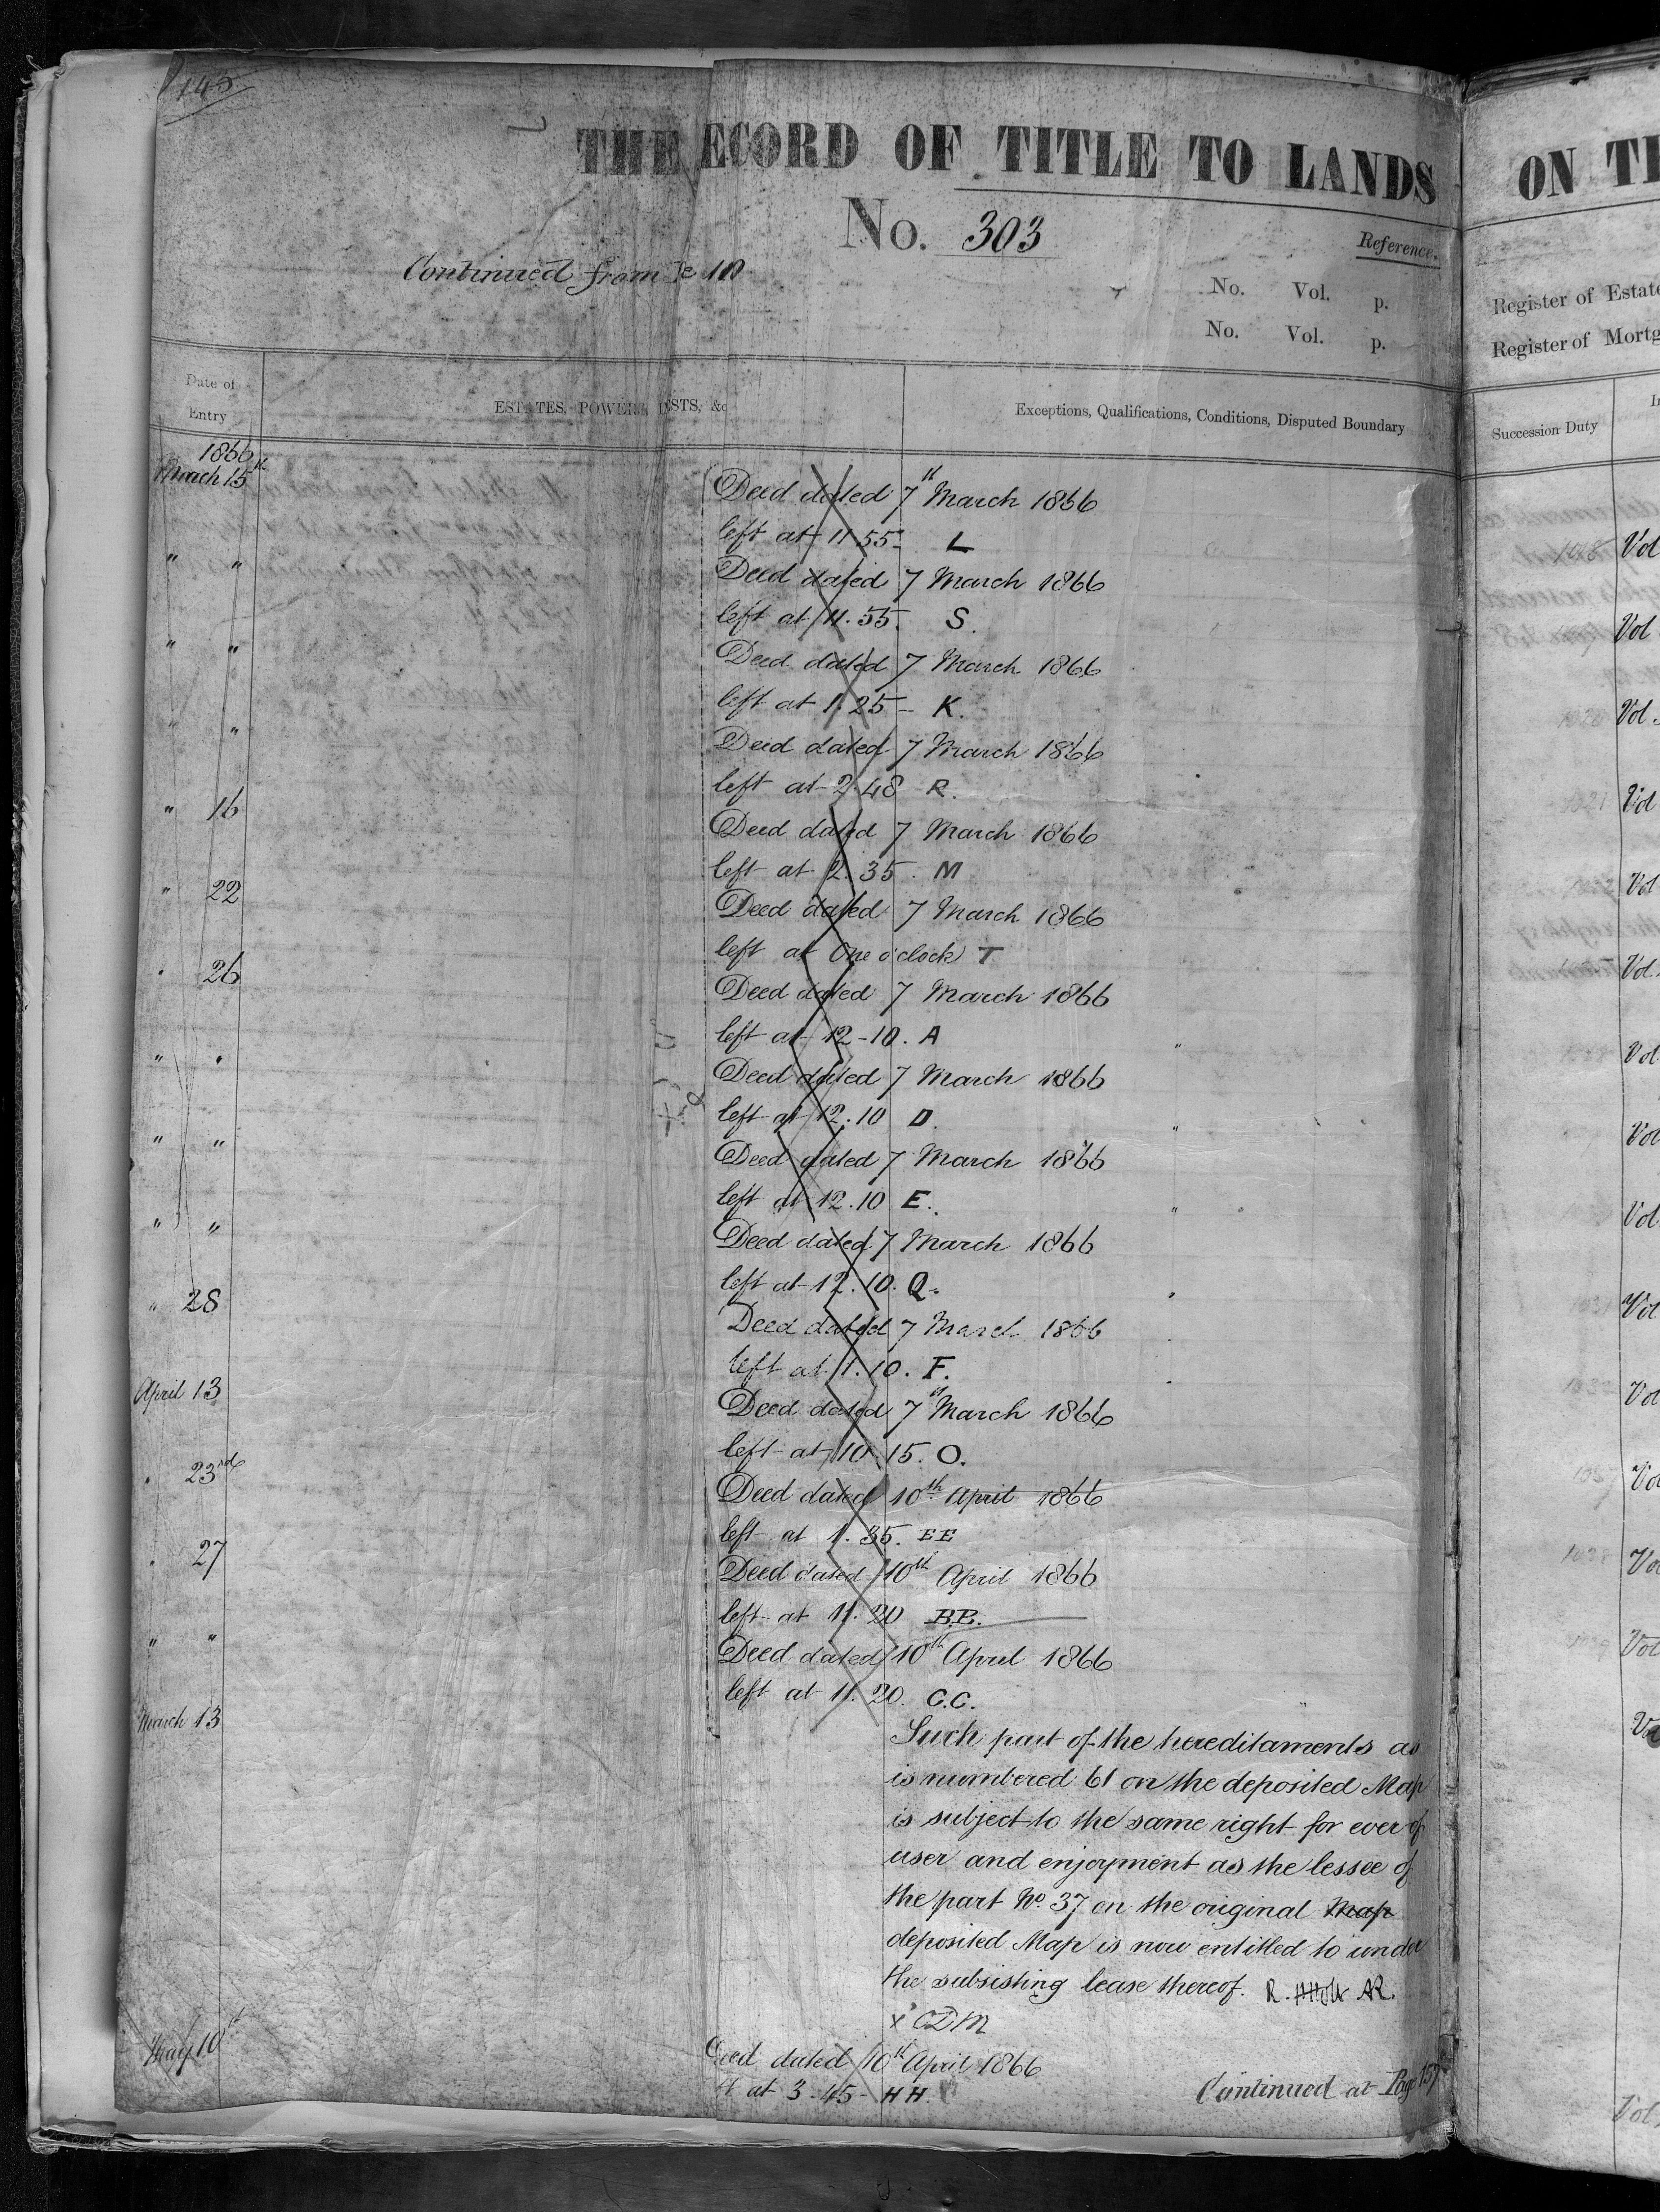 145
THE ECORD OF TITLE TO LANDS
No. 303
Reference.
Continued from e 10
No. Vol. p.
No. Vol. p.
Date of Entry
ESTATES, POWERS, ESTS, &c
Exceptions, Qualifications, Conditions, Disputed Boundary
1866
March 15th
Deed dated 7th March 1866
left at 11.55- L
" "
Deed dated 7 March 1866
left at 11.55. S.
" "
Deed dated 7 March 1866
left at 1.25 - K.
" "
Deed dated 7 March 1866
left at 2.48 R.
" 16
Deed dated 7 March 1866
left at 2.35. M
" 22
Deed dated 7 March 1866
left at One o'clock T
" 26
Deed dated 7 March 1866
left at 12-10. A
" "
Deed dated 7 March 1866
left at 12.10 D.
" "
Deed dated 7 March 1866
left at 12.10 E.
" "
Deed dated 7 March 1866
left at 12.10. Q.
" 28
Deed dated 7 March 1866
left at 1.10. F.
April 13
Deed dated 7th March 1866
left at 10.15. O.
" 23rd
Deed dated 10th April 1866
left at 1.35. EE
" 27
Deed dated 10th April 1866
left at 11.20 B.B.
" "
Deed dated 10th April 1866
left at 11.20. C.C.
March 13
Such part of the hereditaments as
is numbered 61 on the deposited Map
is subject to the same right for ever of
user and enjoyment as the lessee of
the part No. 37 on the original Map
deposited Map is now entitled to under
the subsisting lease thereof. R. AR.
x CDM
May 10th
Deed dated 10th April 1866
at 3.45- HH.
Continued at Page 157
ON TI
Register of Estate
Register of Mortg
Succession Duty
In
Vol
Vol
Vol.
Vol
Vol
Vol.
Vol
Vol
Vol
Vol
Vol
Vol
Vol
Vol
Vol
Vol